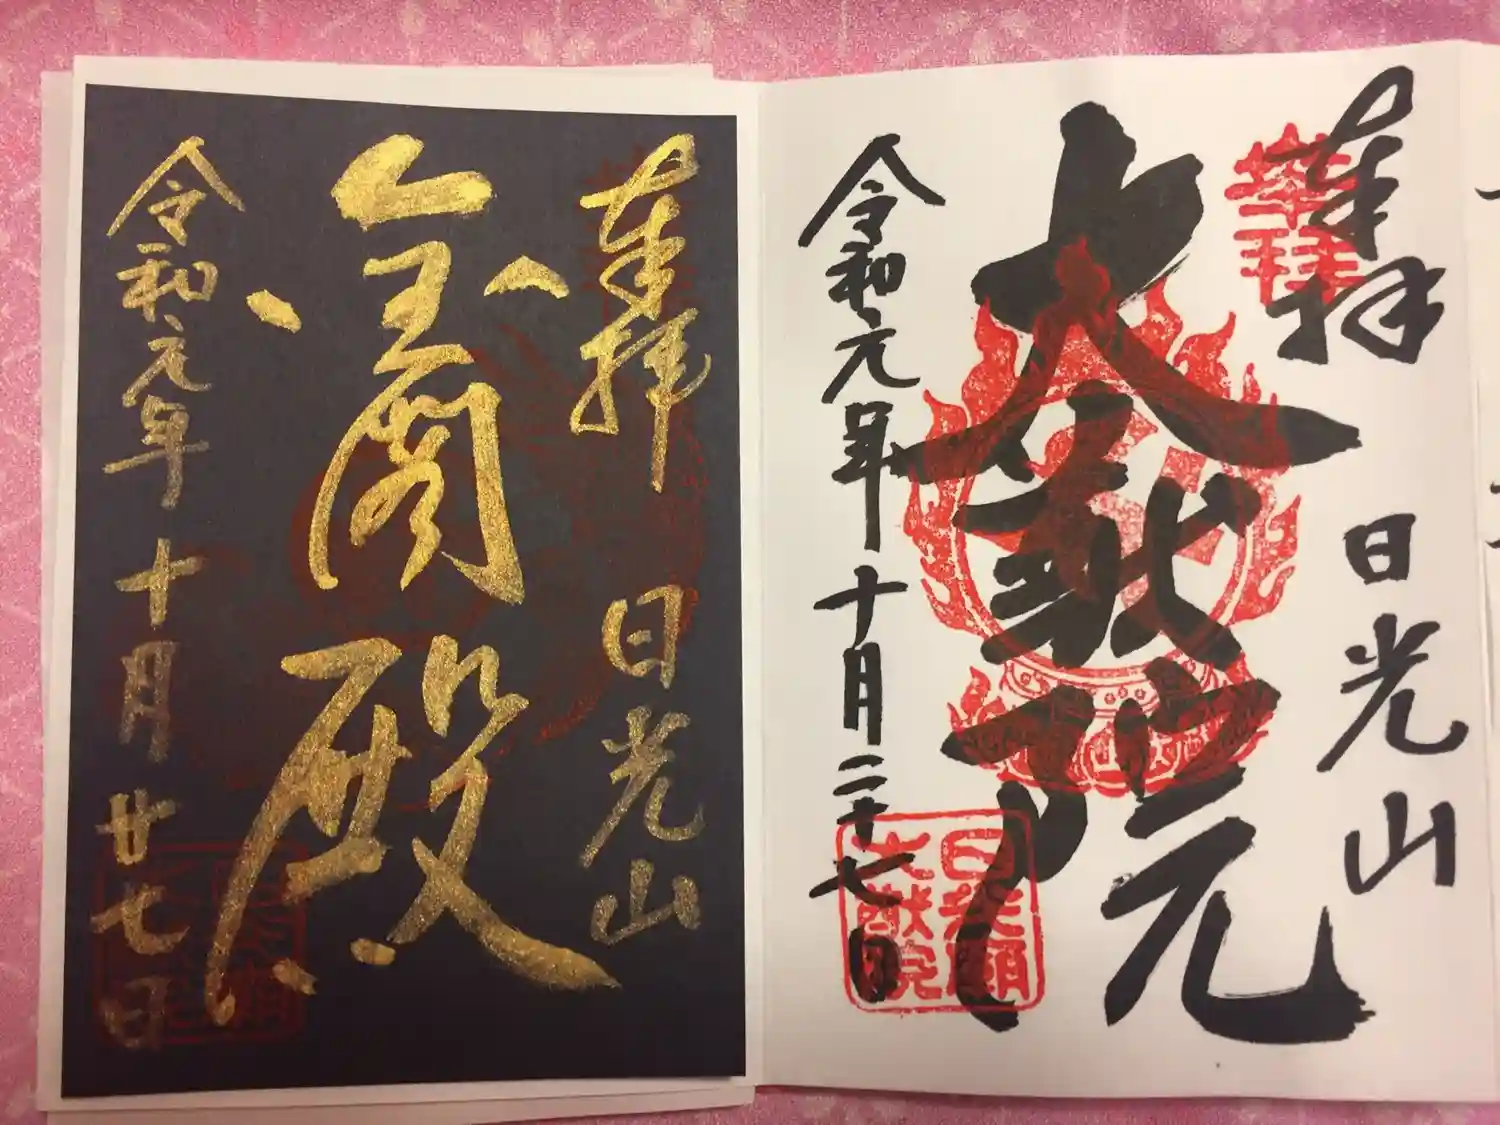 奉拝 日光山
奉拝
大猷院
令和元年十月二十七日
日光廟
大猷院
奉拝 日光山
金閣殿
令和元年十月廿七日